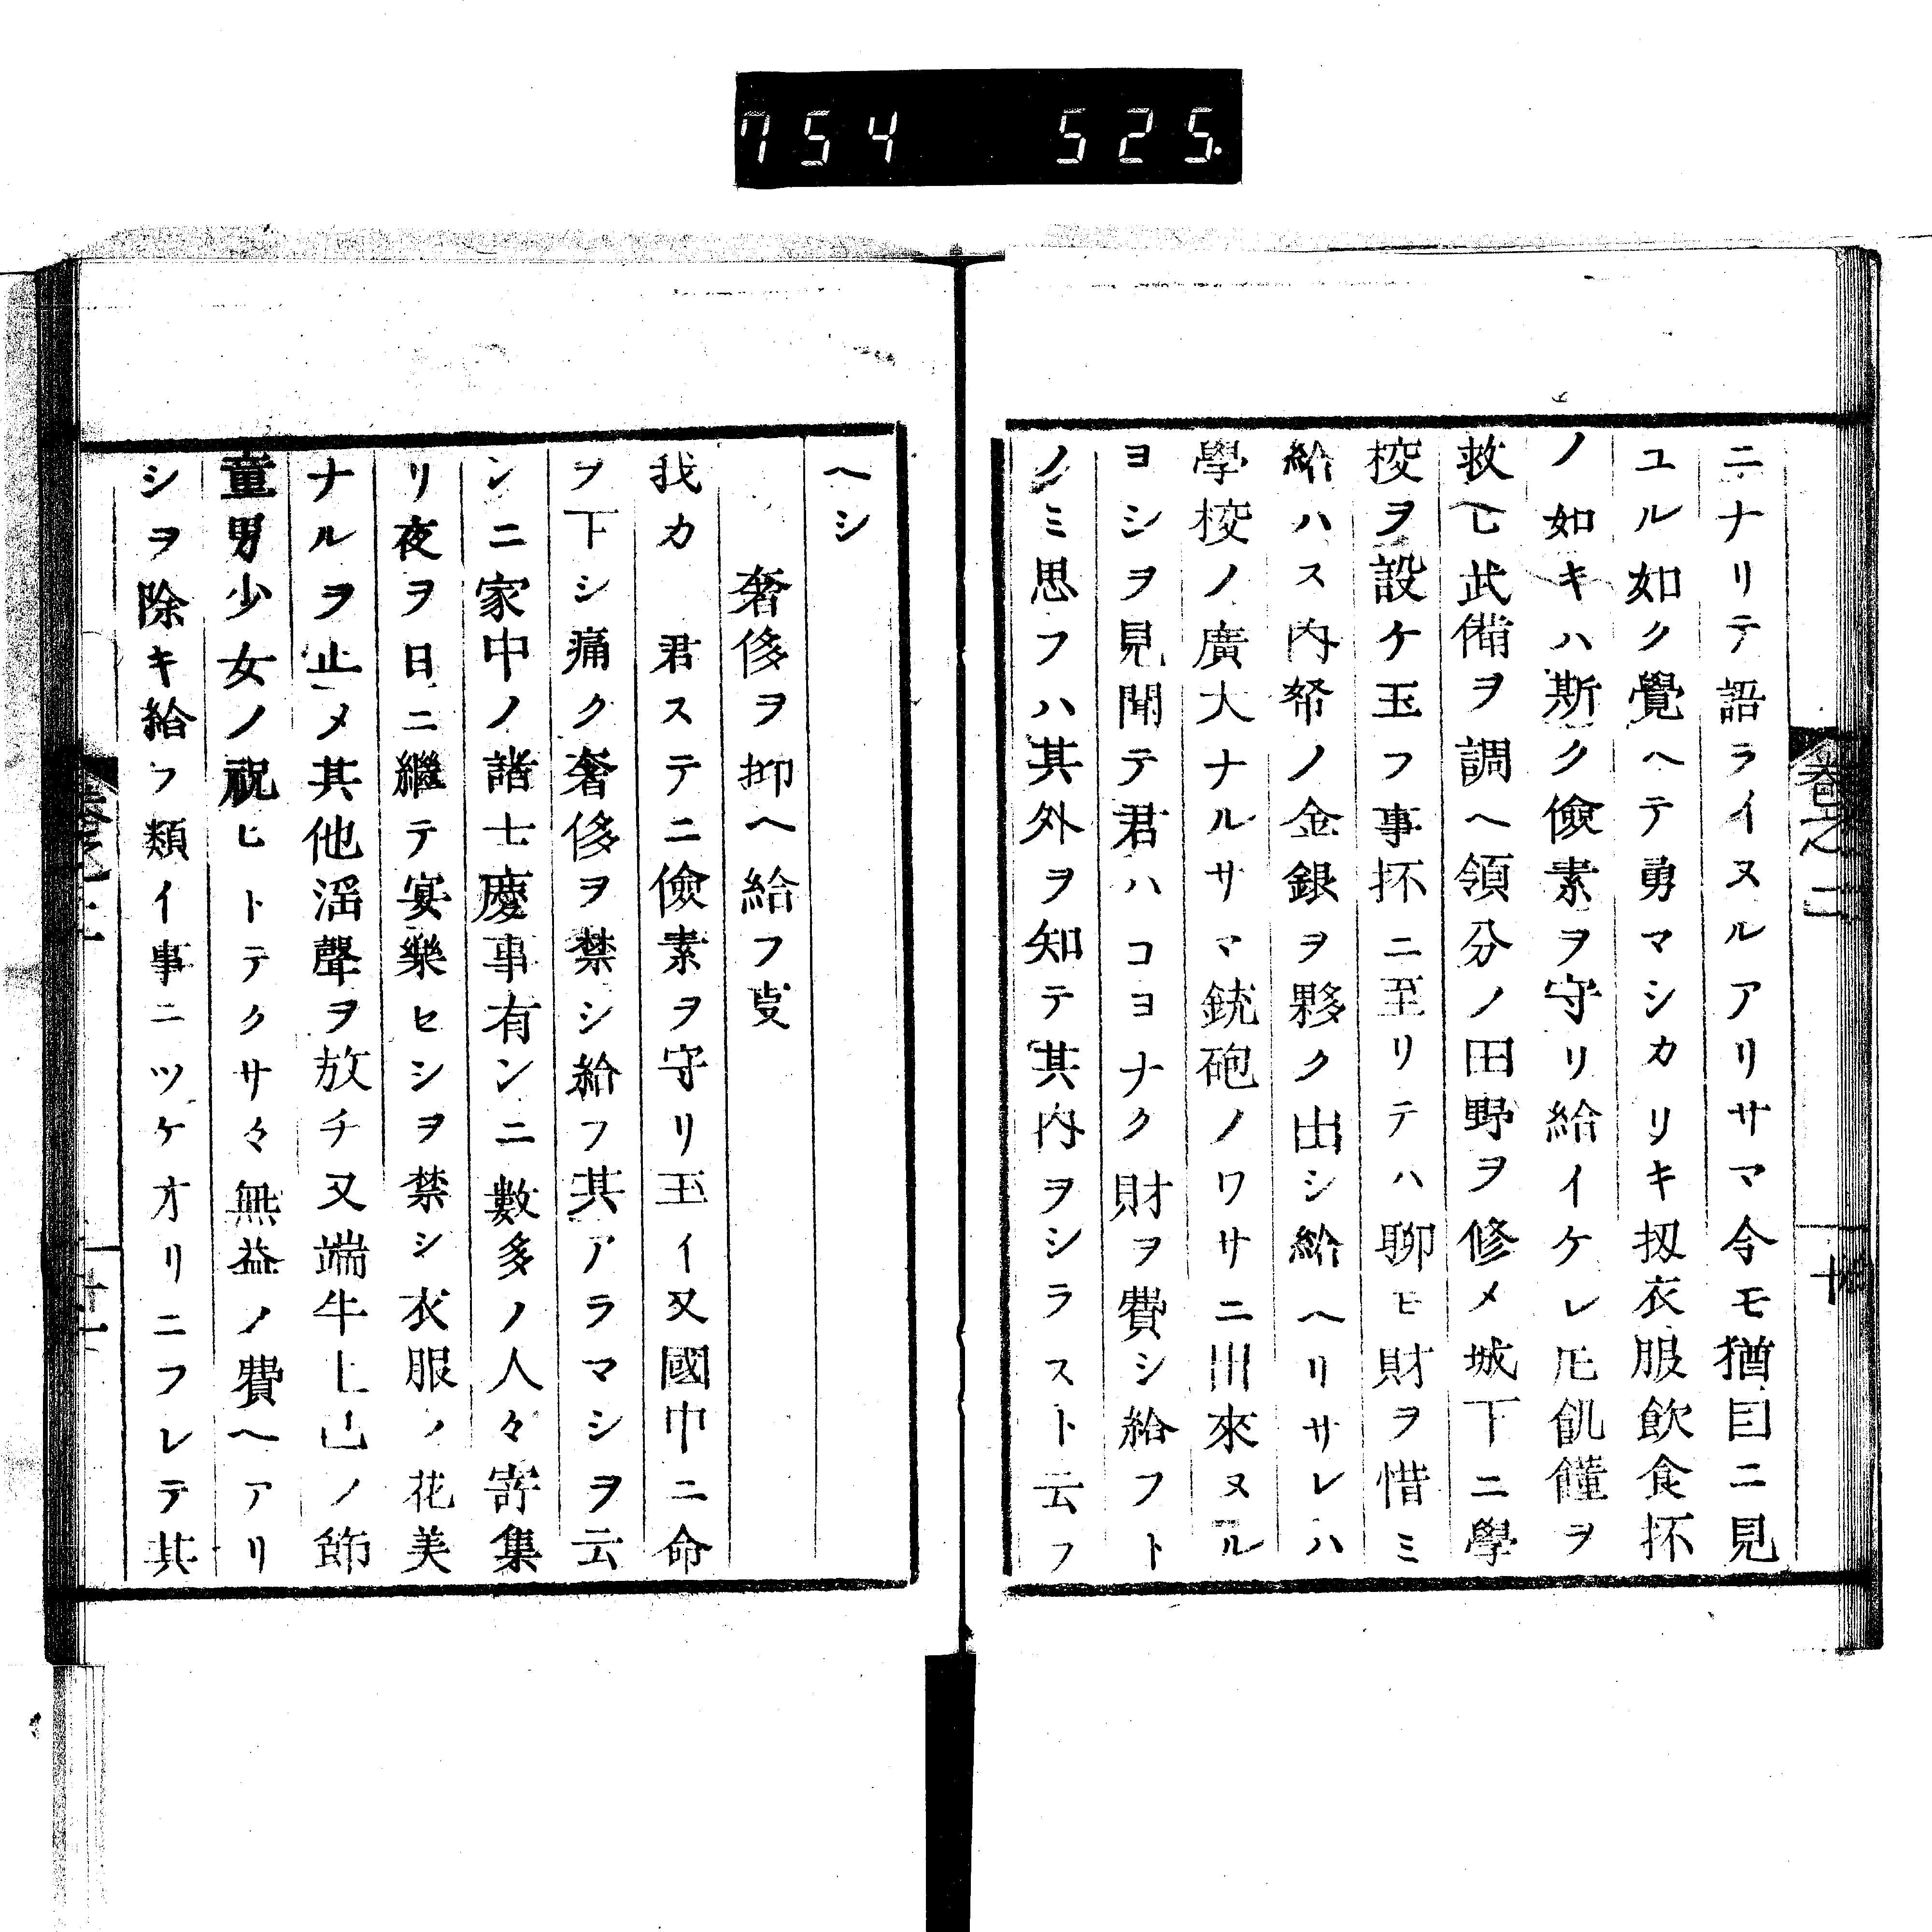 754 525.
巻之二
十
ニナリテ語ライヌルアリサマ今モ猶目ニ見
ユル如ク覺ヘテ勇マシカリキ扨衣服飲食抔
ノ如キハ斯ク儉素ヲ守リ給イケレ𪜈飢饉ヲ
救ヒ武備ヲ調ヘ領分ノ田野ヲ修メ城下ニ學
校ヲ設ケ玉フ事抔ニ至リテハ聊モ財ヲ惜ミ
給ハス内帑ノ金銀ヲ夥ク出シ給ヘリサレハ
學校ノ廣大ナルサマ銃砲ノワサニ出來ヌル
ヨシヲ見聞テ君ハコヨナク財ヲ費シ給フト
ノミ思フハ其外ヲ知テ其内ヲシラスト云フ
ヘシ
奢侈ヲ抑ヘ給フ㕝
我カ 君ステニ儉素ヲ守リ玉イ又國中ニ命
ヲ下シ痛ク奢侈ヲ禁シ給フ其アラマシヲ云
ンニ家中ノ諸士慶事有ンニ數多ノ人々寄集
リ夜ヲ日ニ繼テ宴樂セシヲ禁シ衣服ノ花美
ナルヲ止メ其他淫聲ヲ放チ又端午上巳ノ節
童男少女ノ祝ヒトテクサ々無益ノ費ヘアリ
シヲ除キ給フ類イ事ニツケオリニフレテ其